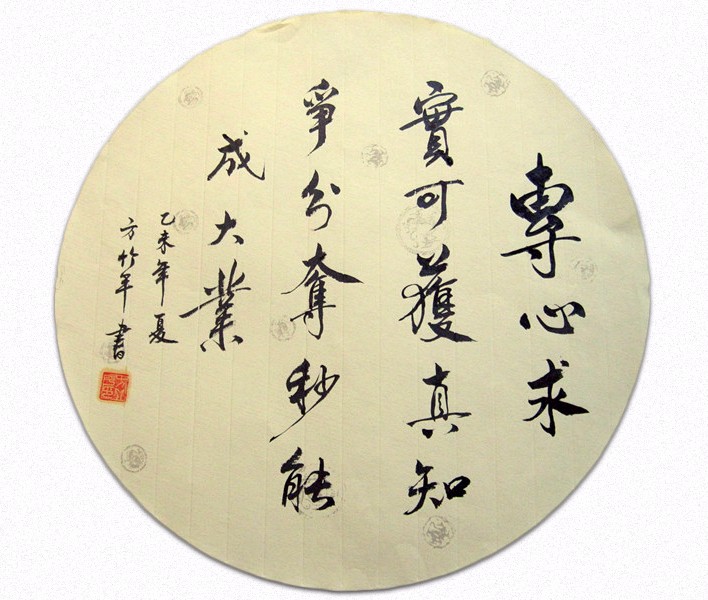 專心求
實可獲真知
爭分奪秒能
成大業
乙未年夏
方竹年書